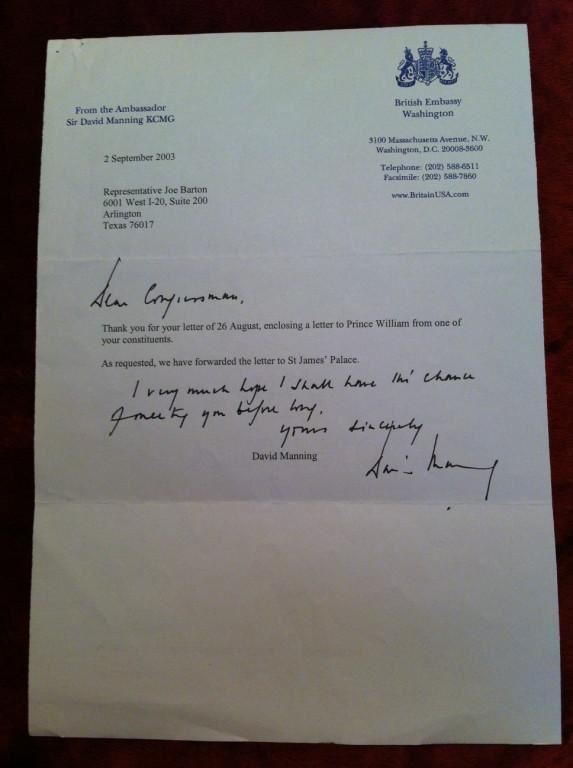 British Embassy
Washington
From the Ambassador
Sir David Manning KCMG
3100 Massachusetts Avenue, N.W.
Washington, D.C. 20008-3600
Telephone: (202) 588-6511
Facsimile: (202) 588-7860
www.BritainUSA.com
2 September 2003
Representative Joe Barton
6001 West I-20, Suite 200
Arlington
Texas 76017
Dear Congressman,
Thank you for your letter of 26 August, enclosing a letter to Prince William from one of
your constituents.
As requested, we have forwarded the letter to St James' Palace.
I very much hope I shall have the chance
of meeting you before long.
Yours sincerely
David Manning
David Manning